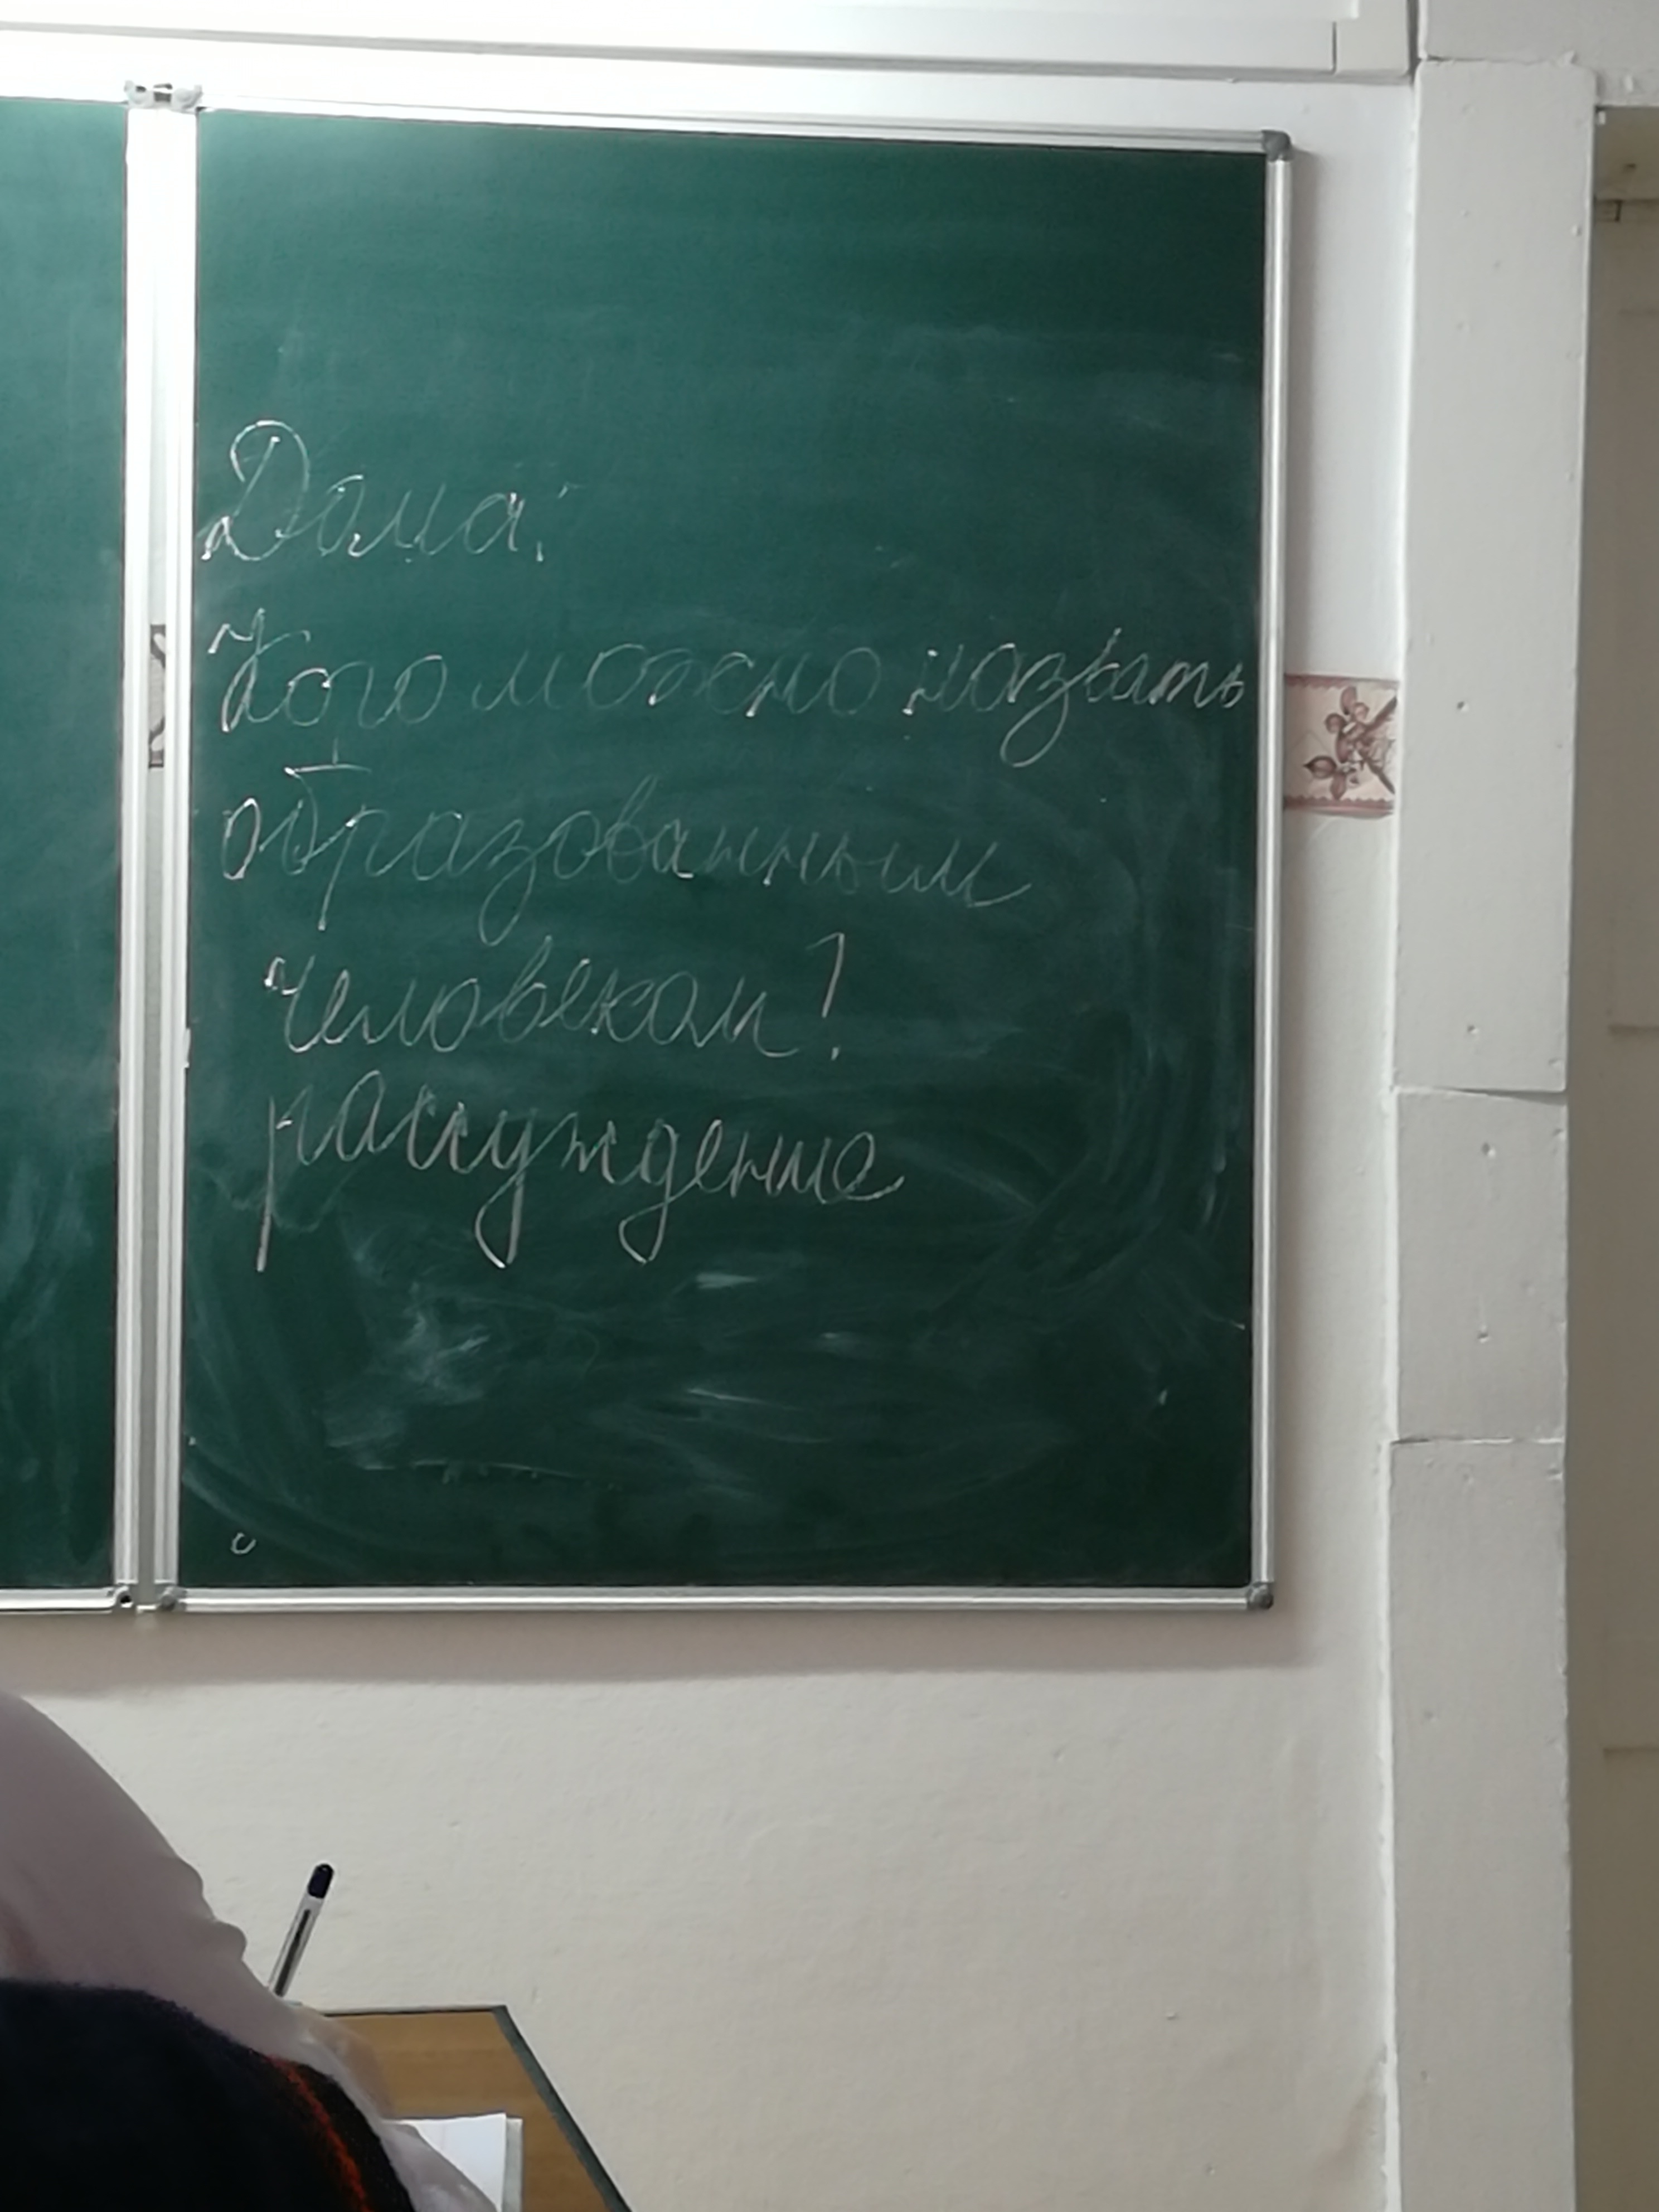 Дома:
Кого можно назвать
образованным
человеком?
рассуждение